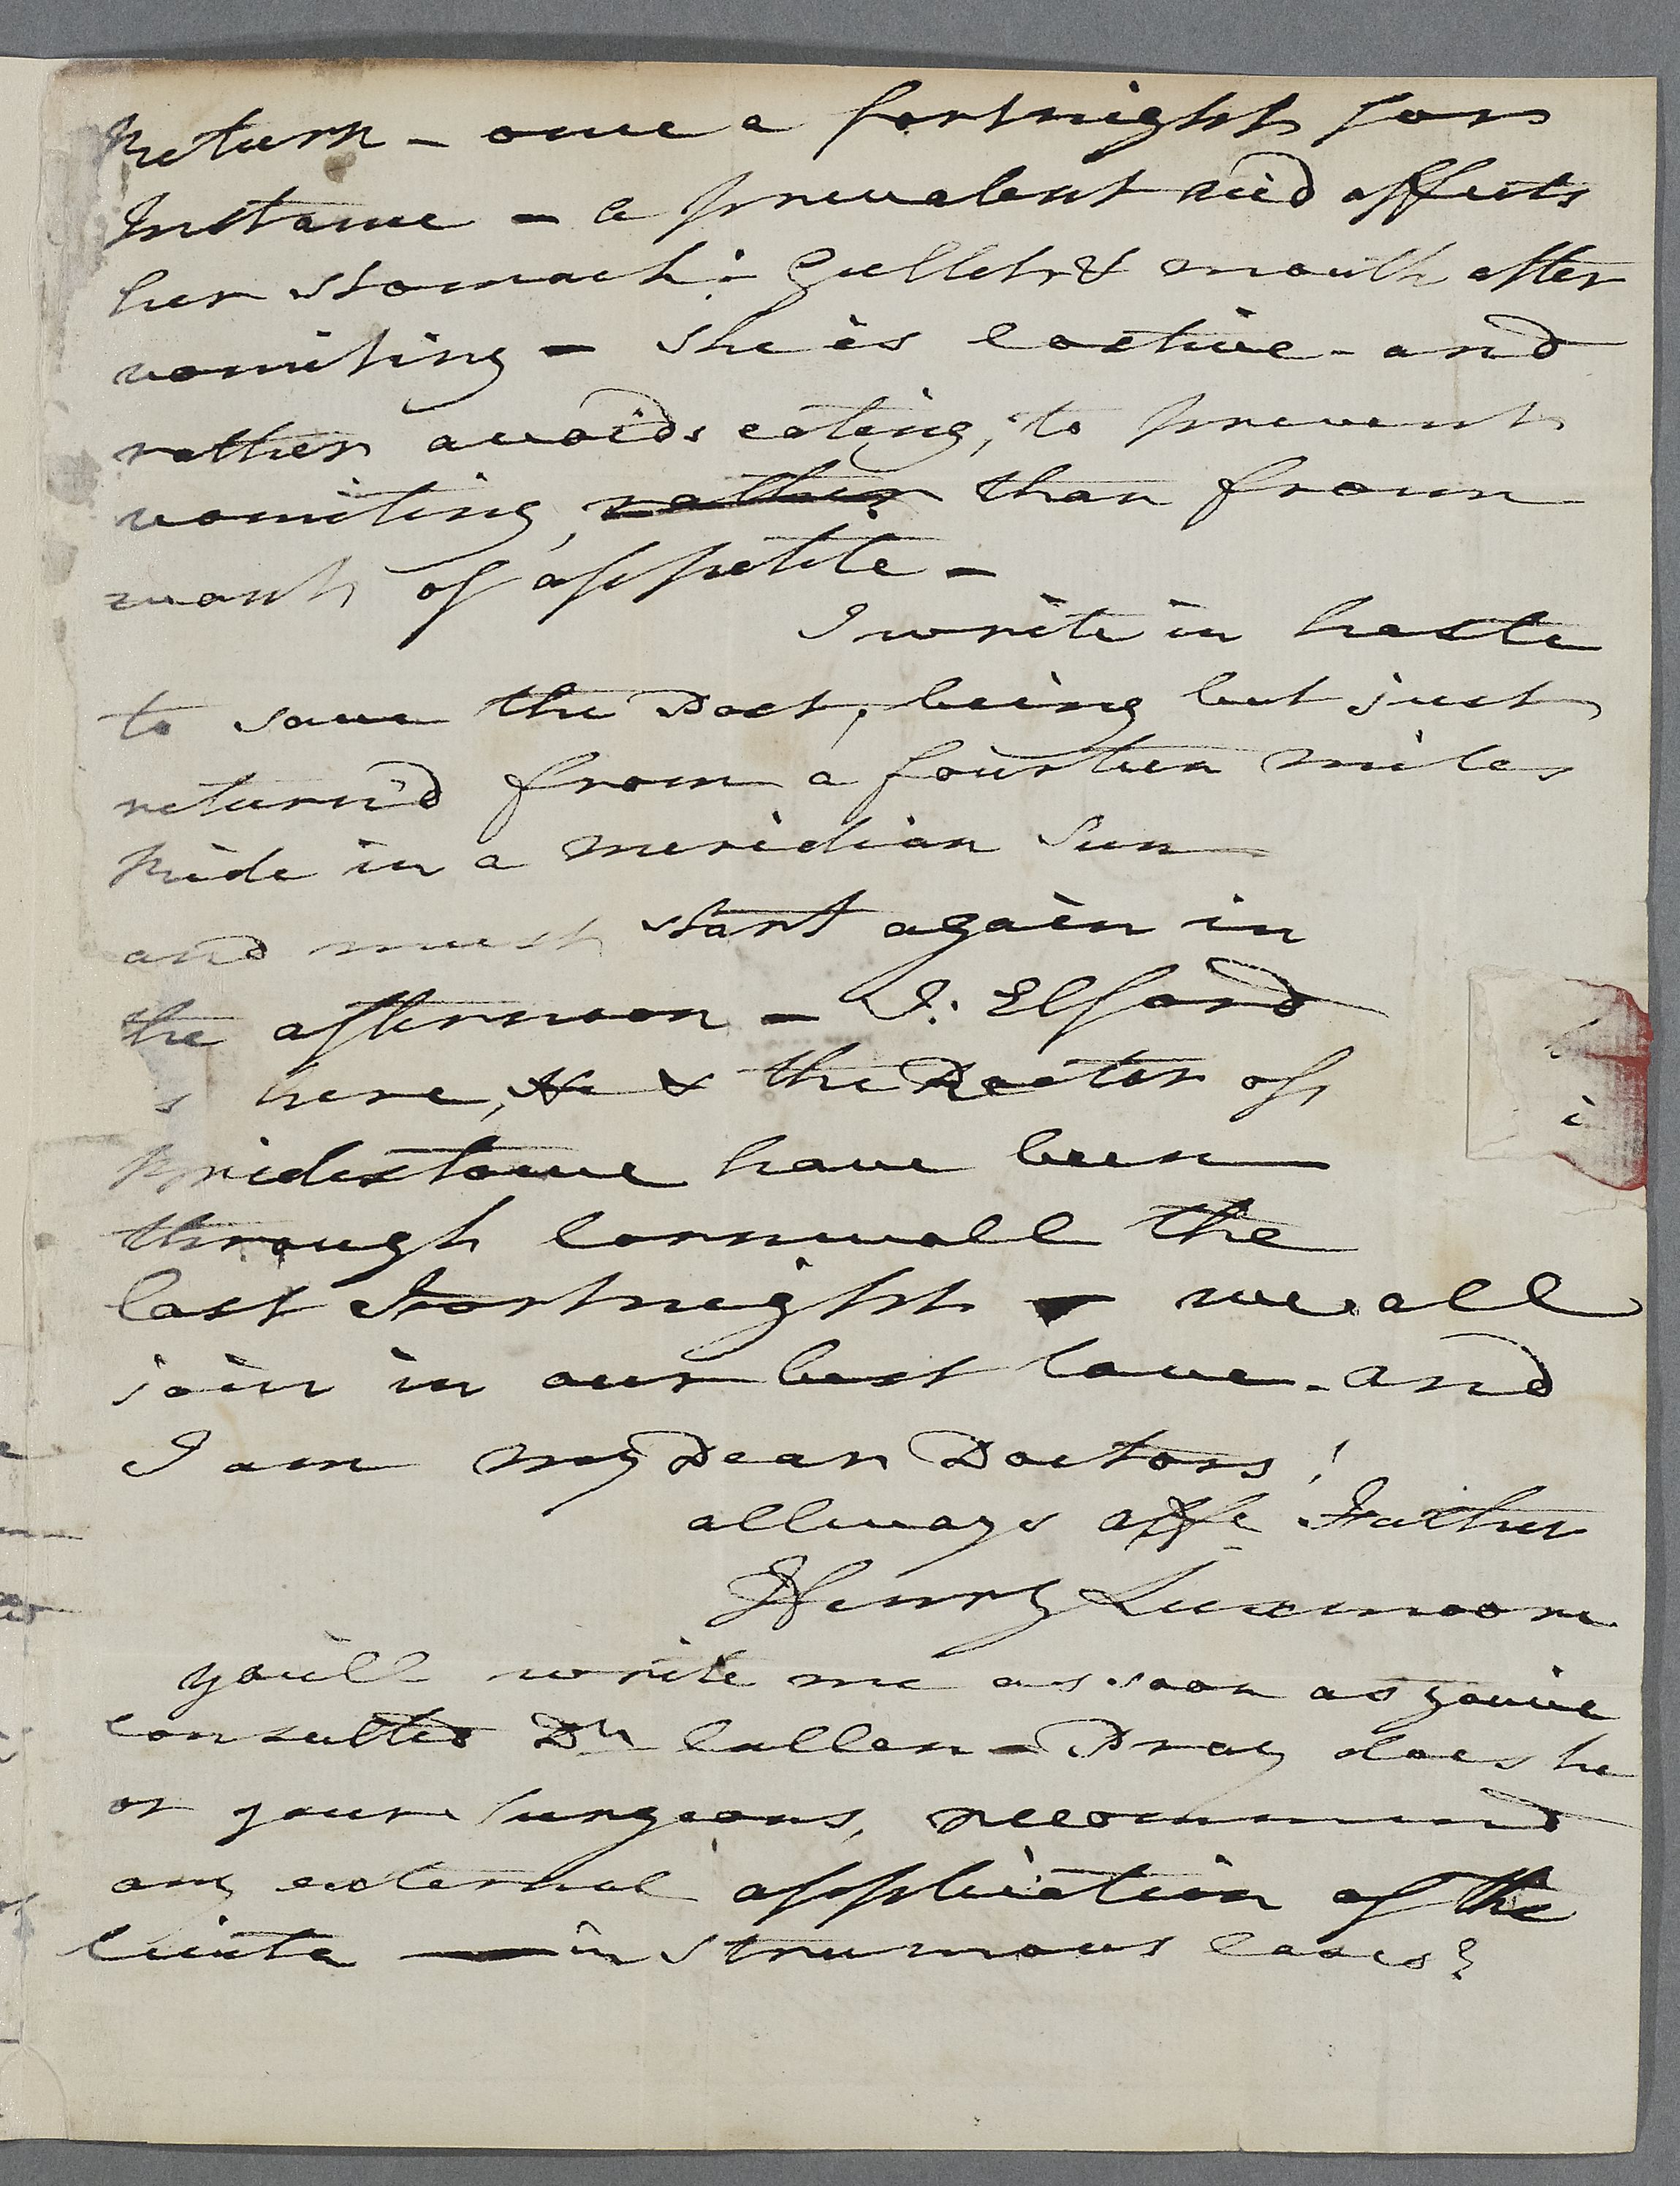 Return - once a fortnight for
Instance - a prevalent acid affects
her stomach: Gullet, & mouth after
vomiting - she is costive - and
rather avoids eating, to prevent
vomiting, rather than from
want of appetite -
I write in haste
to save the Post, being but just
return'd from a fourteen miles
Ride in a meridian Sun
and must start again in
the afternoon - J: Elford
is here, He & the Rector of
Bridestowe have been
through Cornwall the
last Fortnight - we all
join in our best love - and
I am my Dear Doctors!
allways affe Father
Henry Luxmoore
you'll write me as soon as you've
consulted Dr Cullen - Pray does he
or your Surgeons, recommend
any external application of the
Cicuta - in strumous cases?